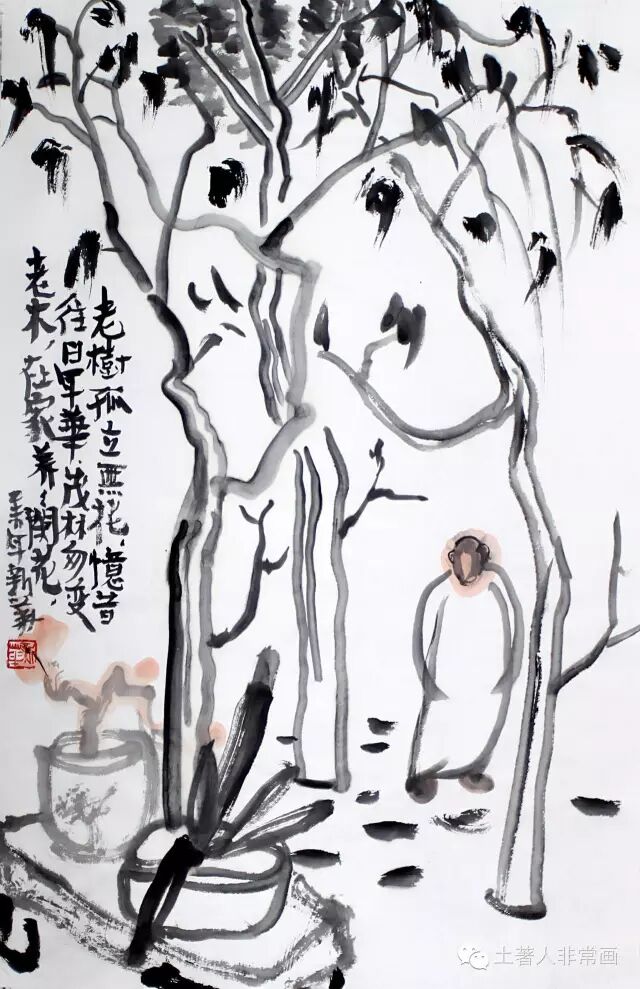 老樹孤立無花，憶昔
往日年華，茂林匆變
老木，在家养养闲花，
年新
土著人非常画